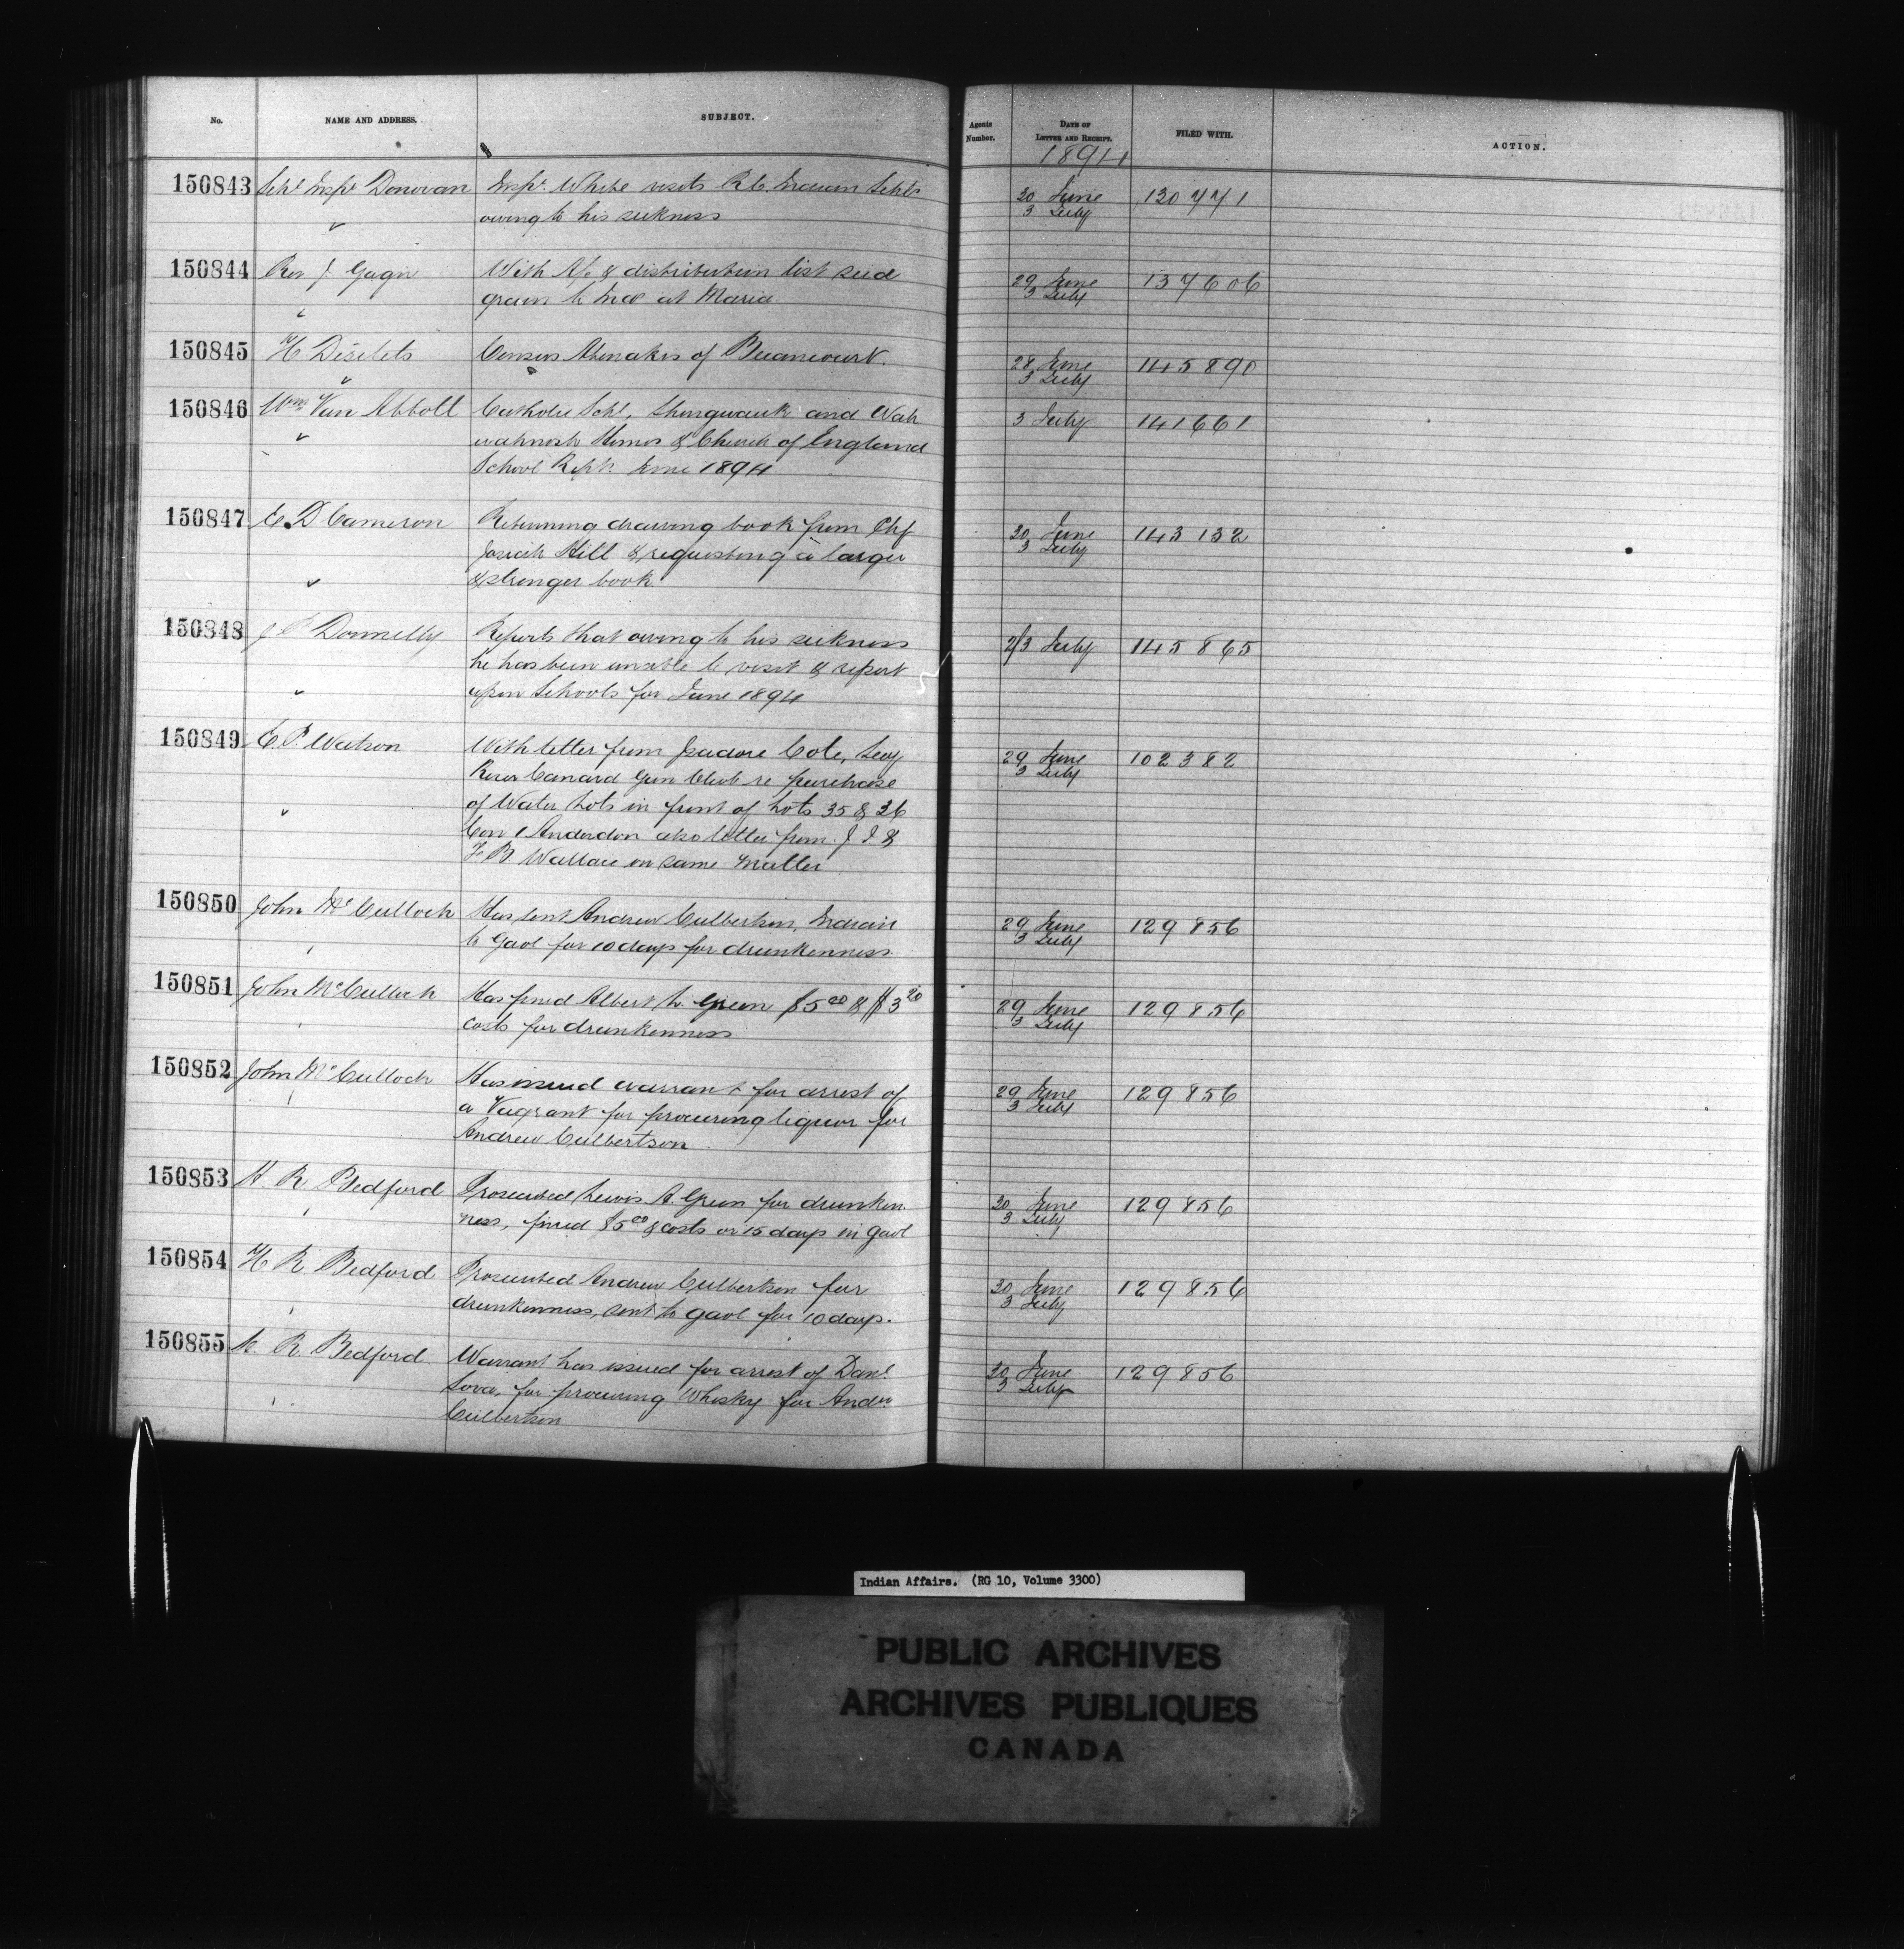 No. NAME AND ADDRESS. SUBJECT. Agents Number. DATE OF LETTER AND RECEIPT. FILED WITH. ACTION.
1894
150843 Schl Inspr Donovan Inspr White visits R.C. Indian Schls 30 June 130771
owing to his sickness 3 July
150844 Rev J Gagné With A/c & distribution list seed 29 June 137606
grain to Inds at Maria 3 July
150845 H Désilets Census Abenakis of Becancourt. 28 June 145890
3 July
150846 Wm Van Abbott Catholic Schl, Shingwauk and Wah 3 July 141661
wahnosh Homes & Church of England
School Repts June 1894
150847 E. D Cameron Returning drawing book from Chf 30 June 143132
Josiah Hill & requesting a larger 3 July
& stronger book.
150848 J P Donnelly Reports that owing to his sickness 2/3 July 145865
he has been unable to visit & report
upon Schools for June 1894
150849 C. P. Watson With letter from Isadore Cole, Secy 29 June 102382
River Canard Gun Club re purchase 3 July
of Water Lots in front of Lots 35 & 36
Con 1 Anderdon also letter from J J &
F B. Wallace on same matter
150850 John McCulloch Has sent Andrew Culbertson, Indian 29 June 129856
to Gaol for 10 days for drunkenness 3 July
150851 John McCulloch Has fined Albert W. Green $5 00 & $3 20 29 June 129856
costs for drunkenness 3 July
150852 John McCulloch Has issued warrant for arrest of 29 June 129856
a Vagrant for procuring liquor for 3 July
Andrew Culbertson
150853 H. R. Bedford Prosecuted Lewis A. Green for drunken 30 June 129856
ness, fined $5 00 & costs or 15 days in gaol 3 July
150854 H R Bedford Prosecuted Andrew Culbertson for 30 June 129856
drunkenness, sent to gaol for 10 days. 3 July
150855 H. R. Bedford. Warrant has issued for arrest of Danl 30 June 129856
for procuring Whisky for Andw 3 July
Culbertson
Indian Affairs. (RG 10, Volume 3300)
PUBLIC ARCHIVES
ARCHIVES PUBLIQUES
CANADA